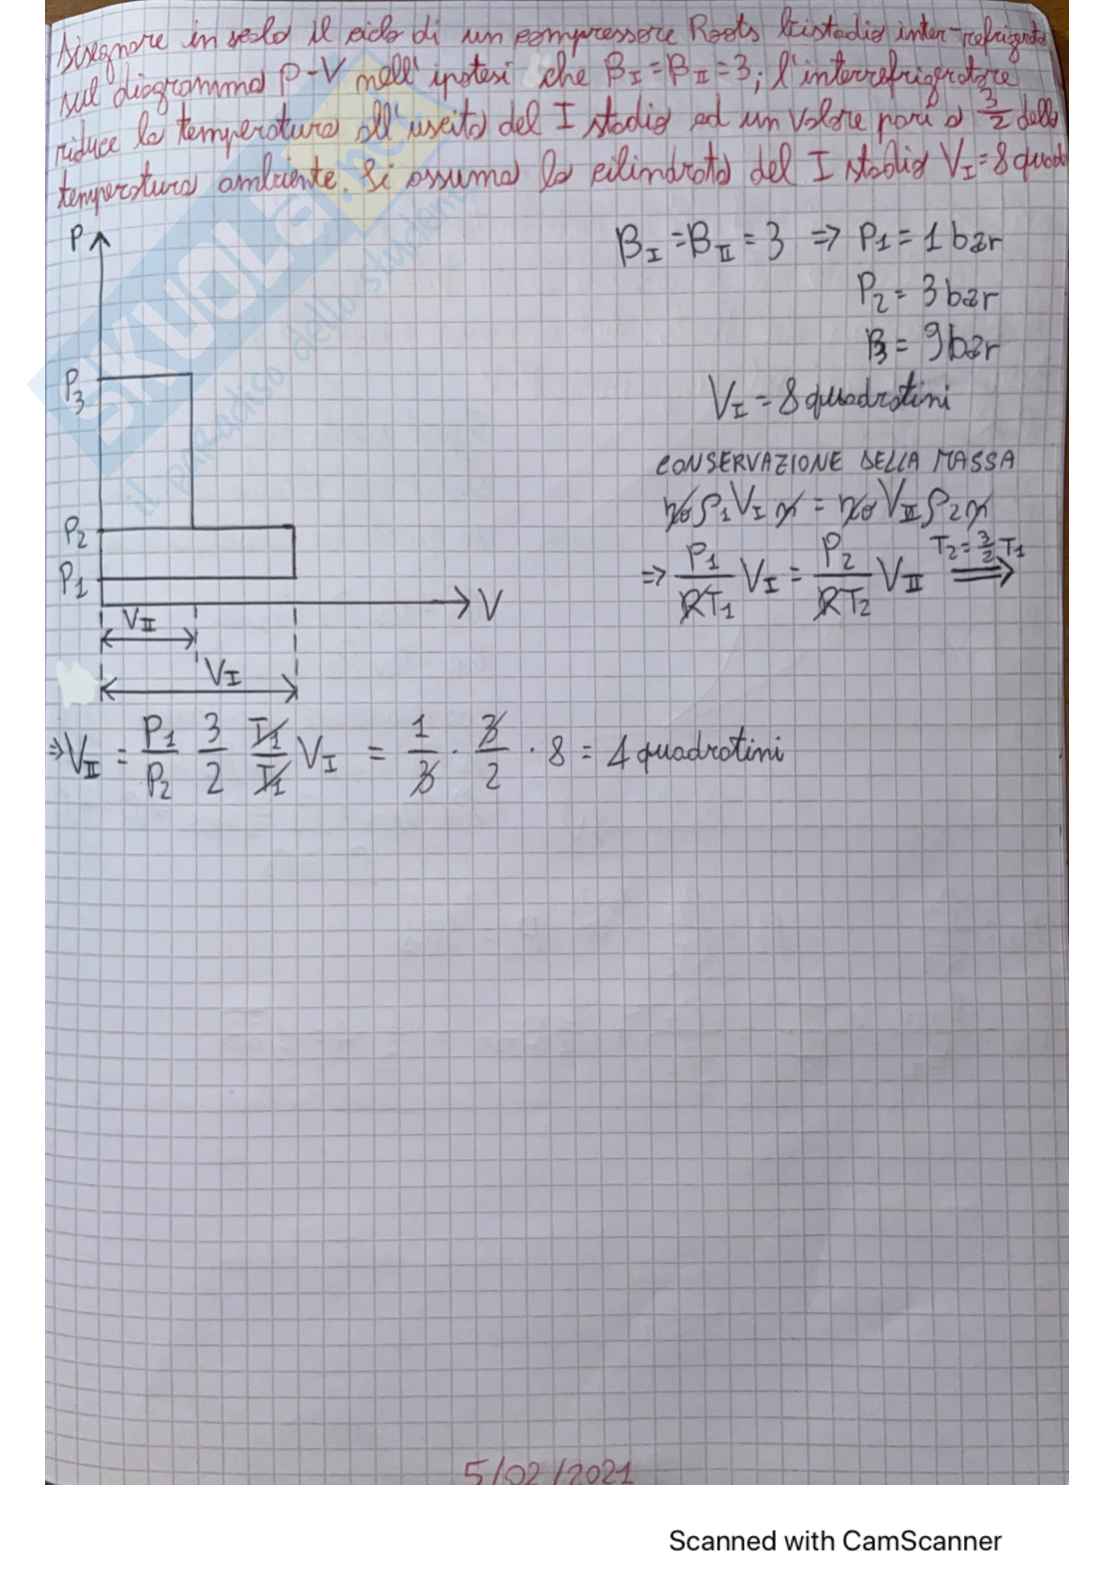 Disegnare in scala il ciclo di un compressore Roots bistadio inter-refrigerato
sul diagramma P-V nell'ipotesi che βI = βII = 3; l'interrefrigeratore
riduce la temperatura all'uscita del I stadio ad un valore pari a 3/2 della
temperatura ambiente. Si assuma la cilindrata del I stadio VI = 8 quad
P
βI = βII = 3 => P1 = 1 bar
P2 = 3 bar
P3 = 9 bar
P3
VI = 8 quadratini
CONSERVAZIONE DELLA MASSA
i0 ρ1 VI n = i0 VII ρ2 n
P2
P1
=> P1/RT1 VI = P2/RT2 VII T2 = 3/2 T1 =>
V
VII
VI
=> VII = P1/P2 3/2 T1/T1 VI = 1/3 · 3/2 · 8 = 4 quadratini
5/02/2021
Scanned with CamScanner
SKUOLA.net
il paradiso dello studente